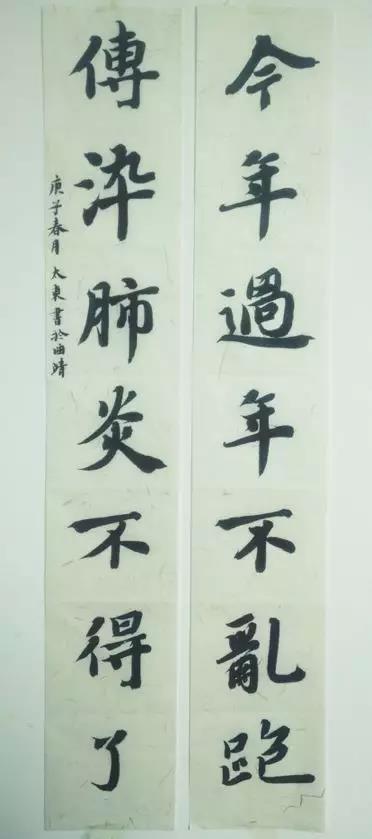 今年過年不亂跑
傳染肺炎不得了
庚子春月 太東書於曲靖